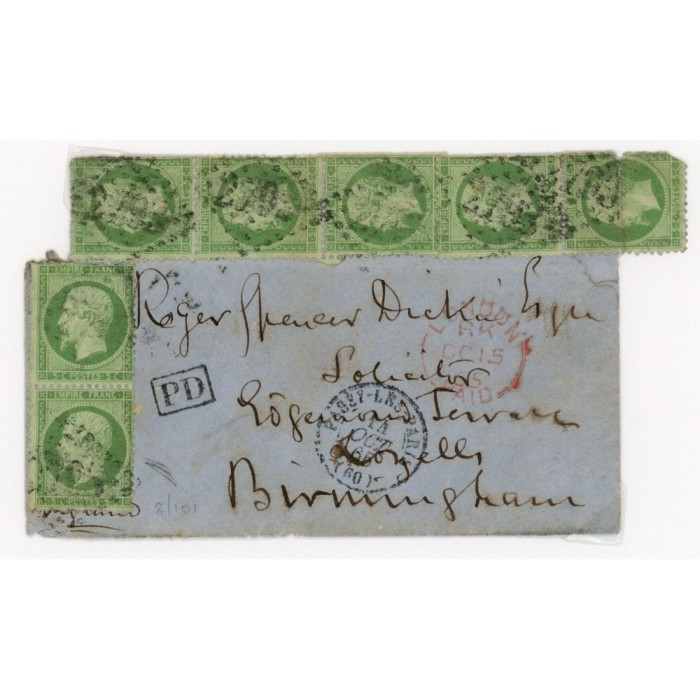 EMPIRE FRANC
5 C POSTES 5 C
EMPIRE FRANC
5 C POSTES 5 C
Roger Spencer Dickin Esqre
Solicitor
Terrace
Lozells
Birmingham
England
PD
LONDON
RK
OC 15
PAID
PASSY-LES-PARIS
14
OCT
(60)
8/101